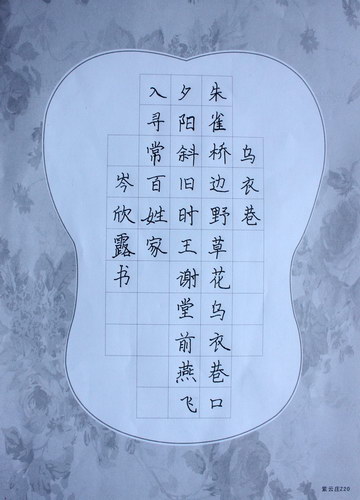 乌衣巷
朱雀桥边野草花乌衣巷口
夕阳斜旧时王谢堂前燕飞
入寻常百姓家
岑欣露书